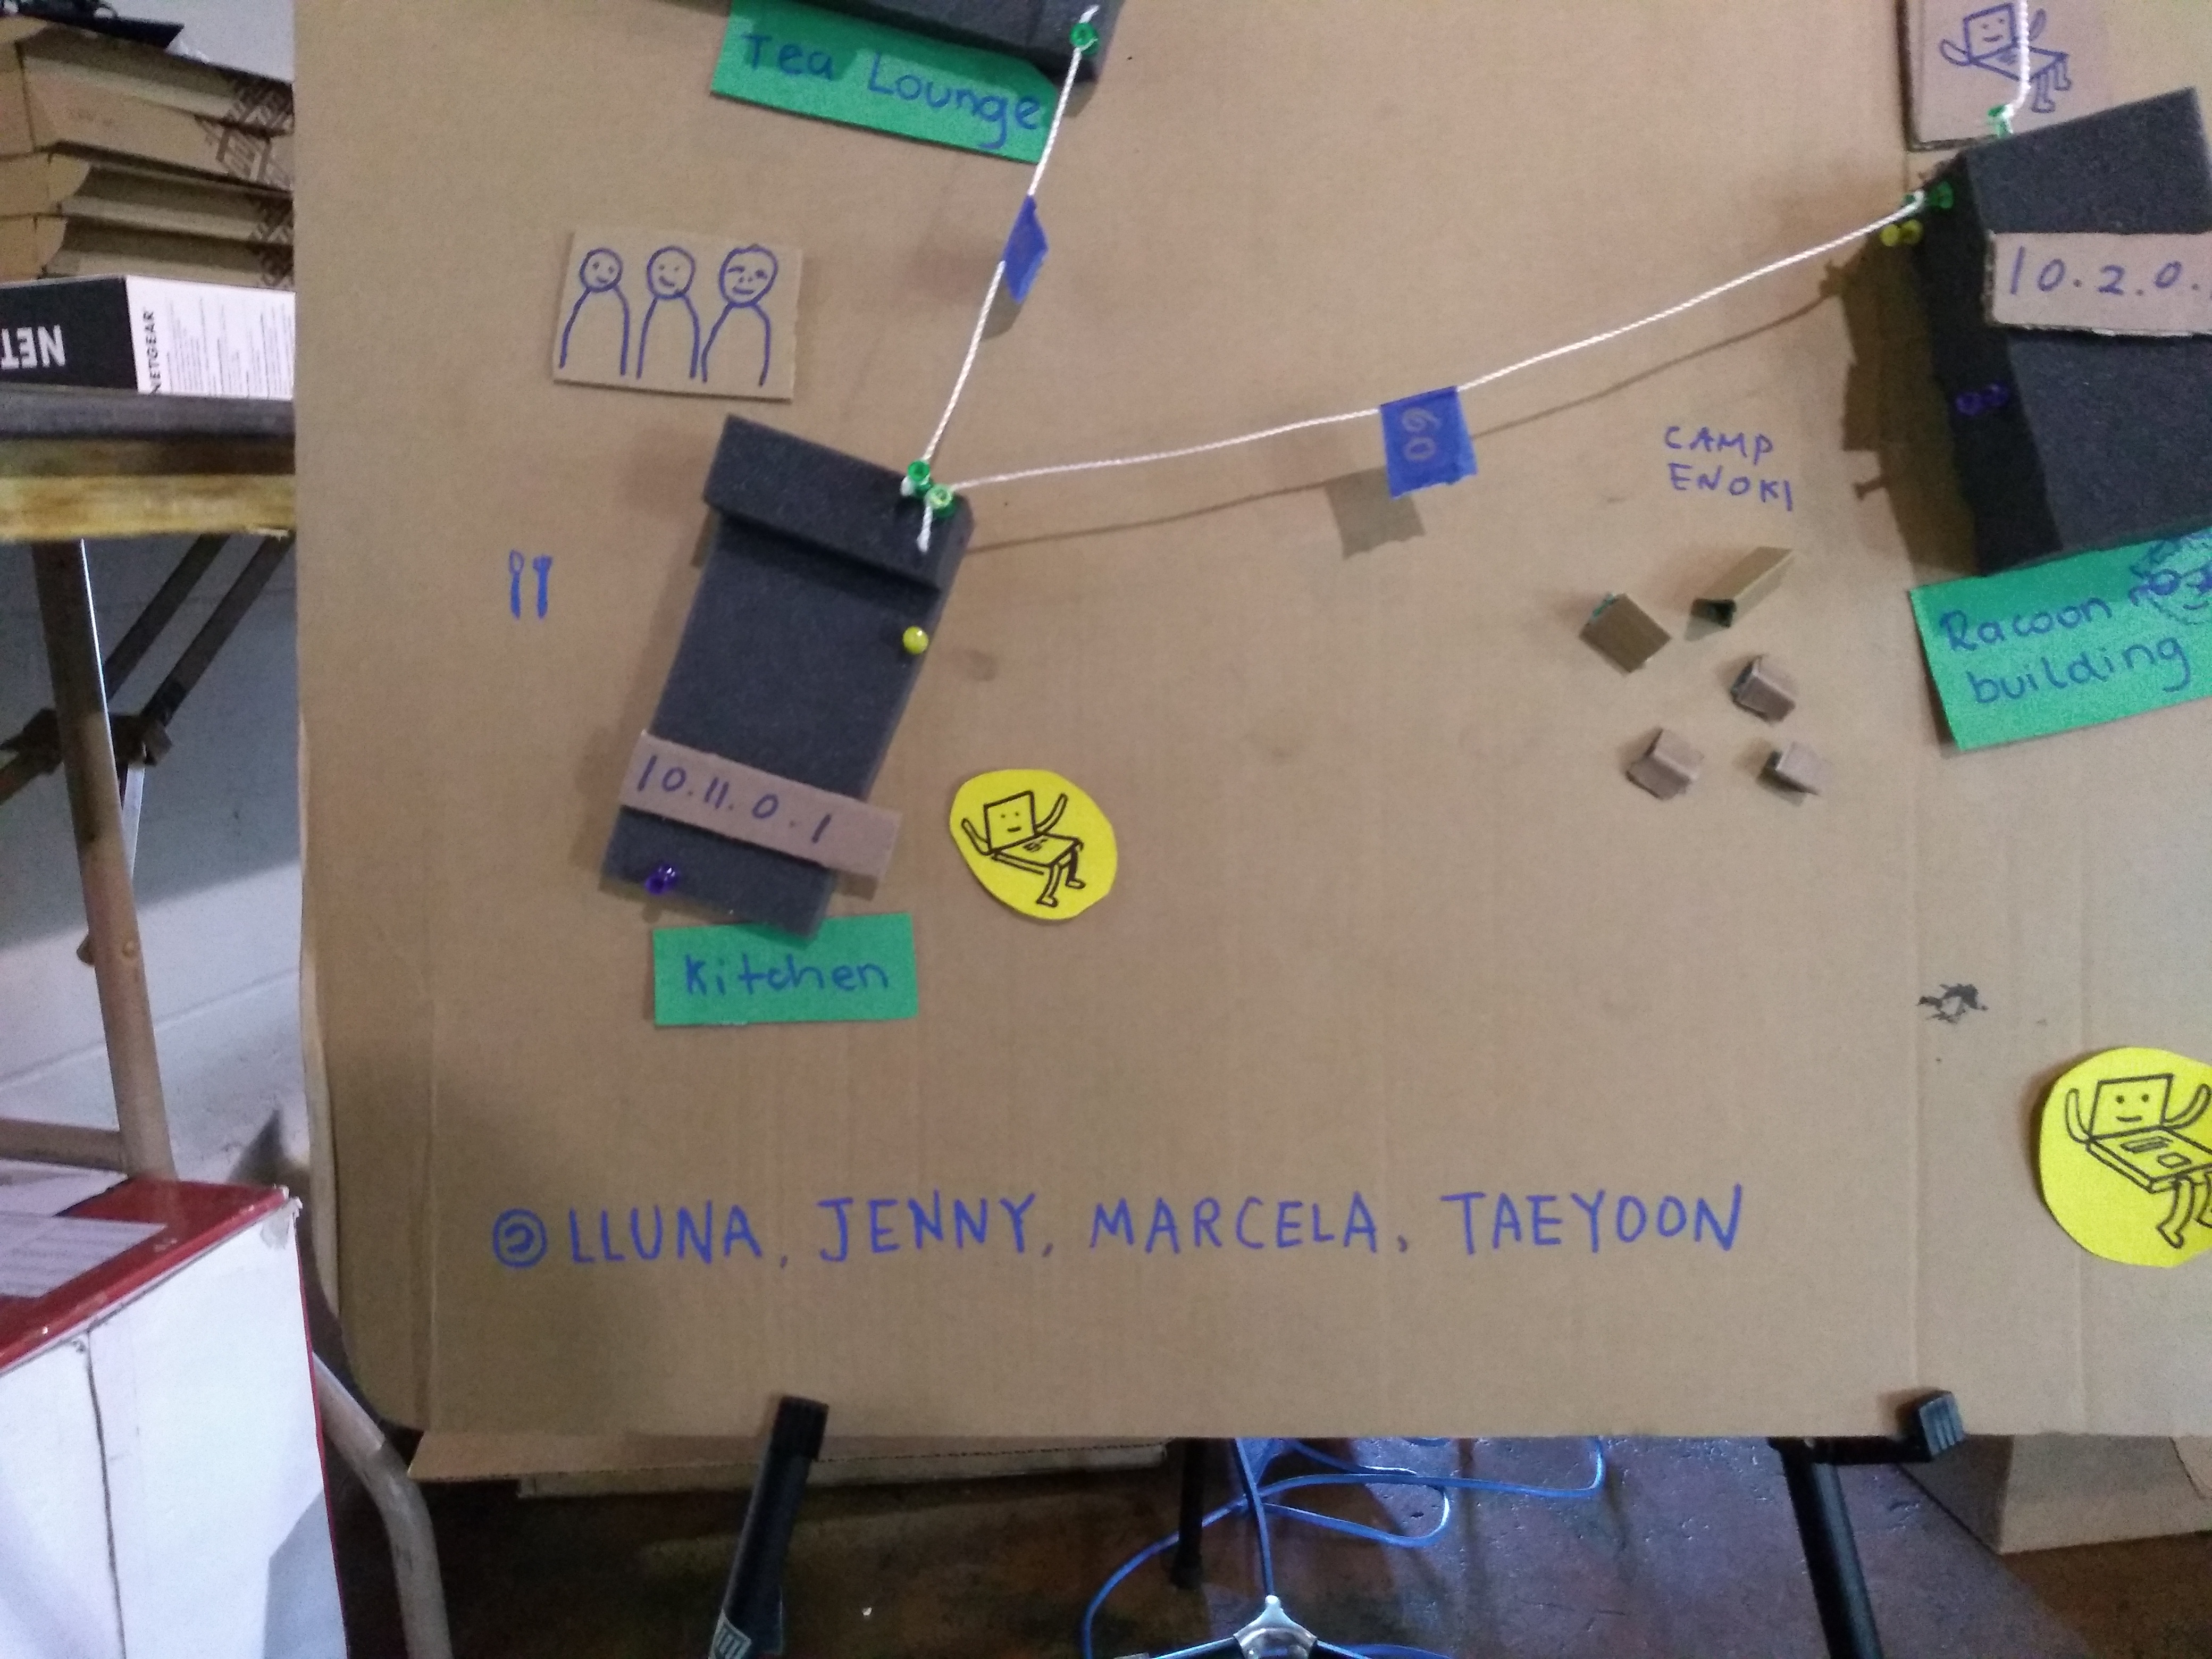 Tea Lounge
NETGEAR
NET
10.2.0.
60
CAMP
ENOKI
Racoon
building
10.11.0.1
Kitchen
LLUNA, JENNY, MARCELA, TAEYOON